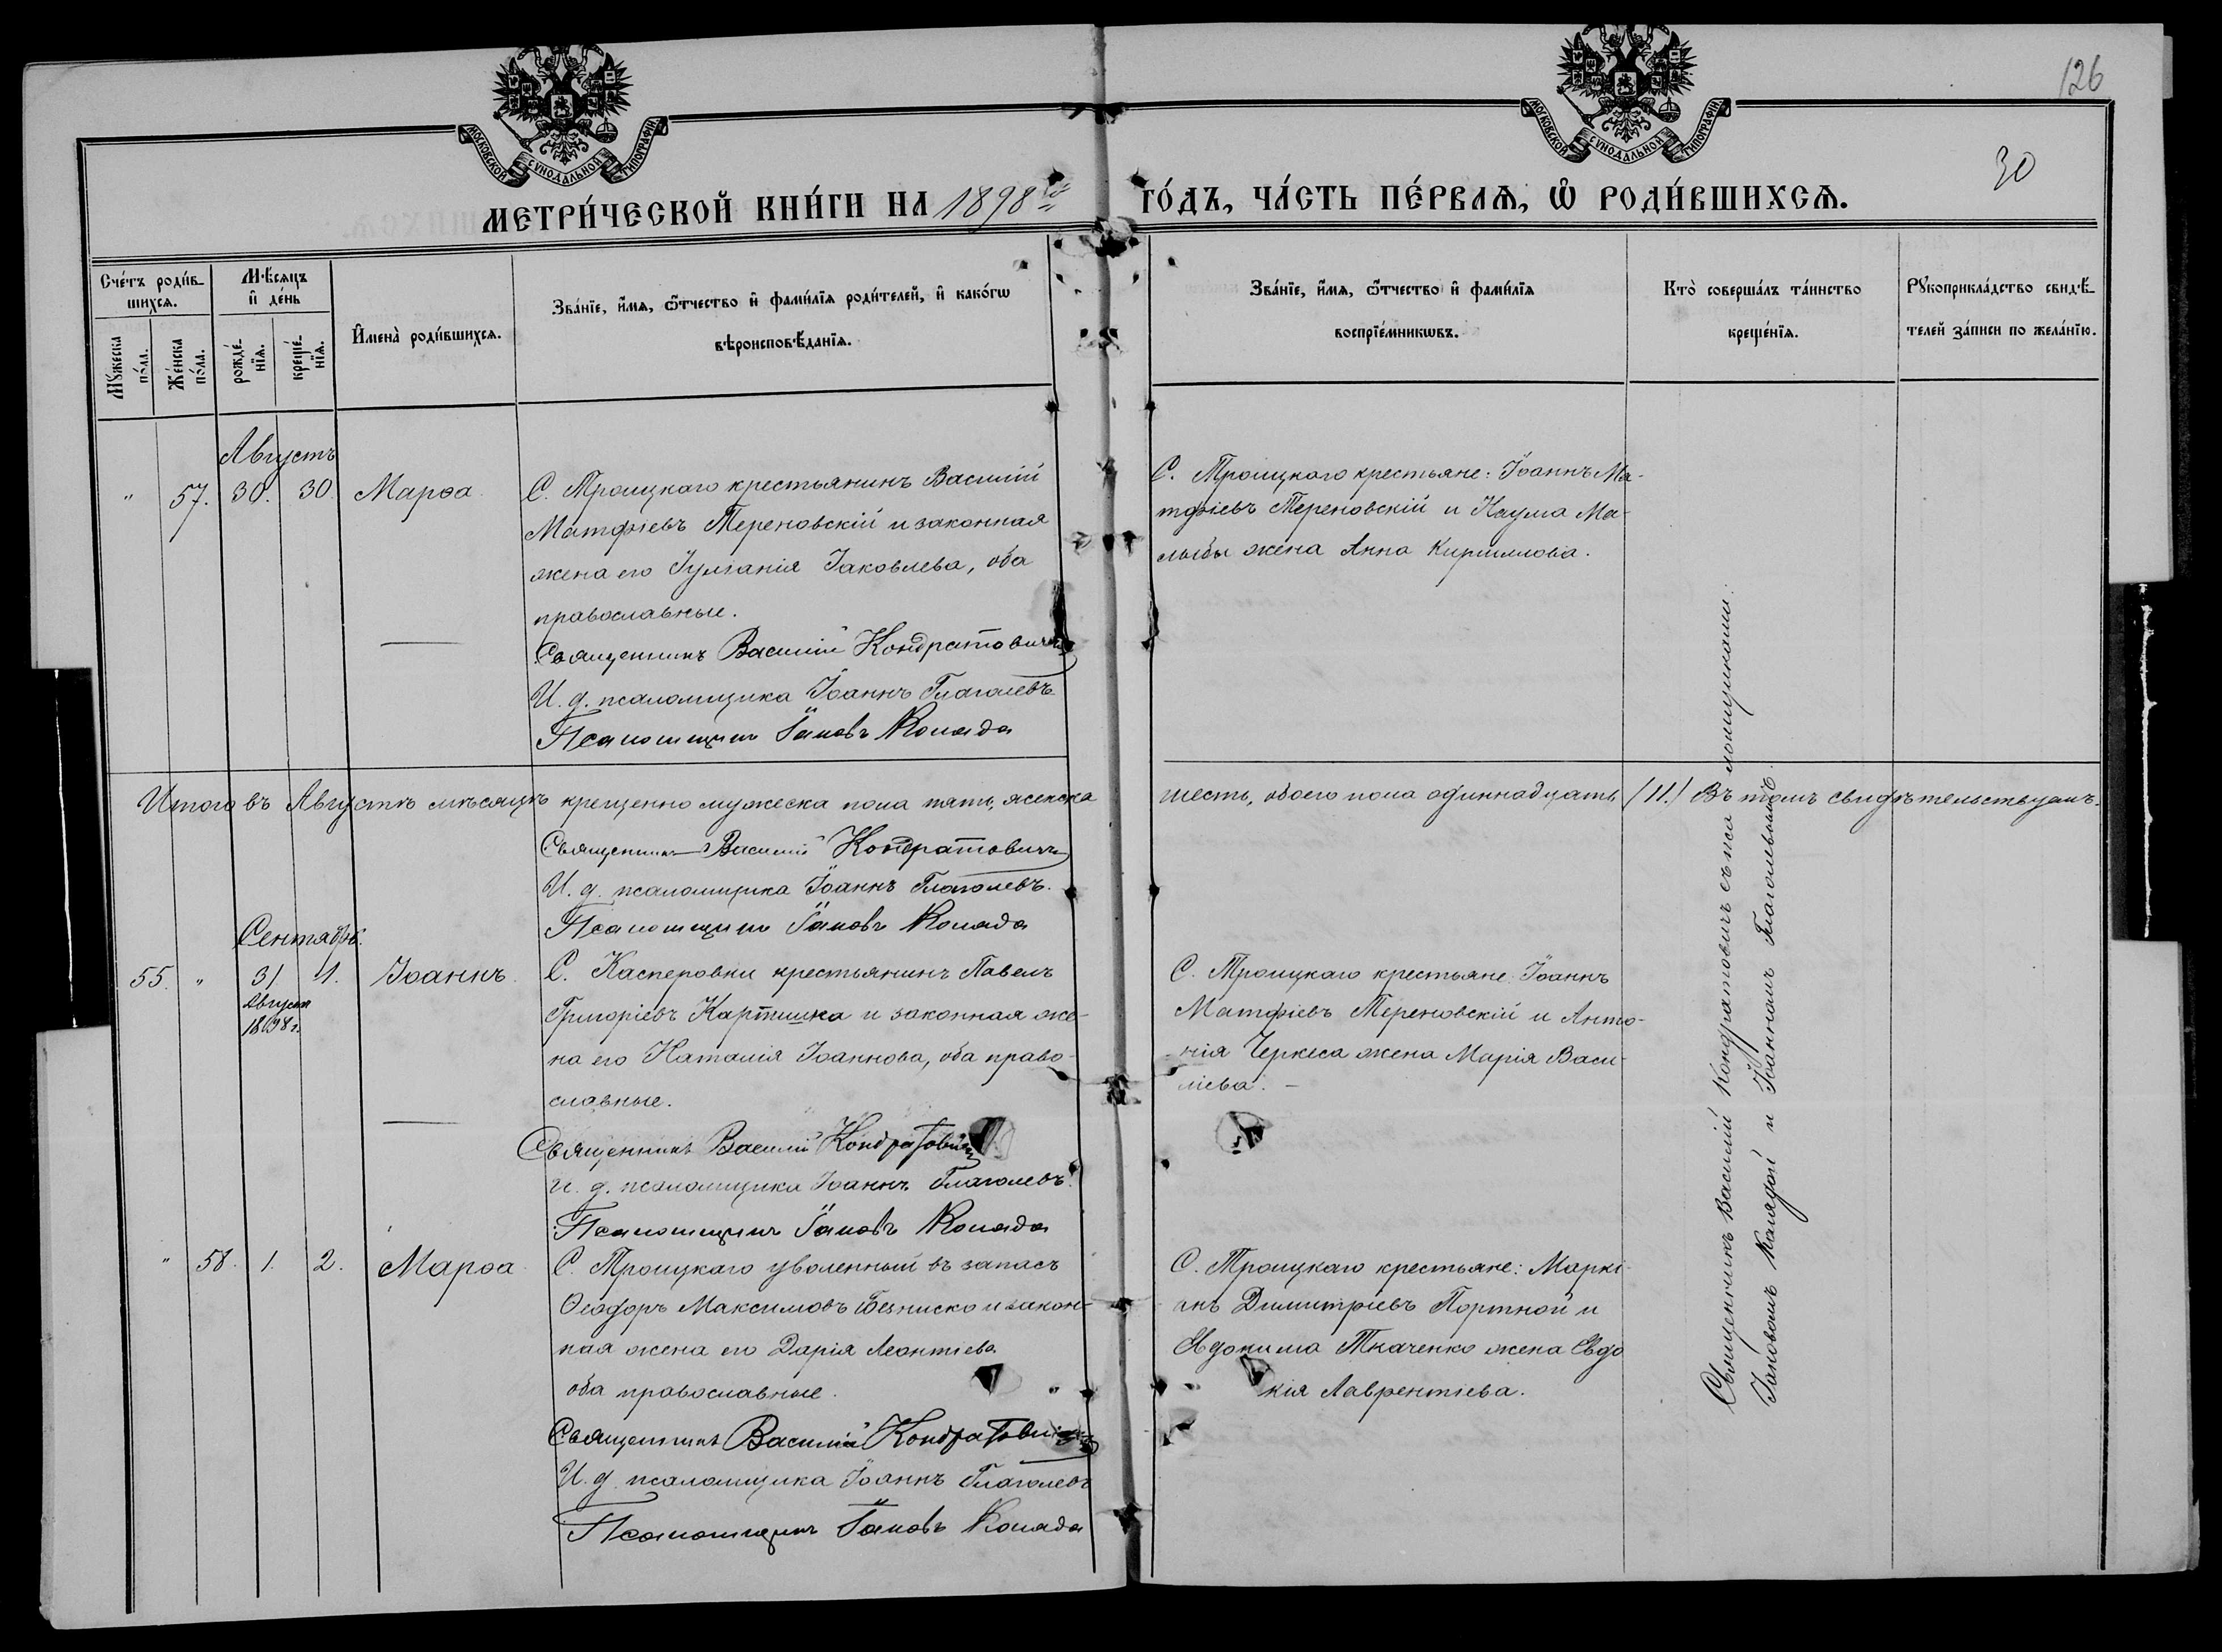 126
30
МОСКОВСКОЙ СѴНОДАЛЬНОЙ ТИПОГРАФІИ
МОСКОВСКОЙ СѴНОДАЛЬНОЙ ТИПОГРАФІИ
МЕТРИ́ЧЕСКОЙ КНИ́ГИ НА 1898 й ГО́ДЪ, ЧА́СТЬ ПЕ́РВАѦ, Ѡ҆ РОДИ́ВШИХСѦ.
Сче́тъ роди́в-
шихсѧ.
Мꙋ́жеска
по́ла.
Же́нска
по́ла.
Мѣ́сѧцъ
и҆ де́нь
рожде́-
нїѧ.
креще́-
нїѧ.
И҆мена̀ роди́вшихсѧ.
Зва́нїе, и҆́мѧ, ѻ҆́тчество и҆ фами́лїѧ роди́телей, и҆ како́гѡ
вѣроисповѣ́данїѧ.
Зва́нїе, и҆́мѧ, ѻ҆́тчество и҆ фами́лїѧ
воспрїе́мникѡвъ.
Кто̀ соверша́лъ та́инство
креще́нїѧ.
Рꙋкоприкла́дство свидѣ́-
телей за́писи по жела́нїю.
Августъ
" 57. 30. 30. Марѳа.
С. Троицкаго крестьянинъ Василій
Матфіевъ Тереновскій и законная
жена его Іуліанія Іаковлева, оба
православные.
Священникъ Василій Кондратовичъ
И. д. псаломщика Іоаннъ Глаголевъ
Псаломщикъ Іаковъ Коляда
С. Троицкаго крестьяне: Іоаннъ Ма-
тфіевъ Тереновскій и Наума Ма-
лыбы жена Анна Кириллова.
Итого въ Августѣ мѣсяцѣ крещенно мужеска пола пять, женска шесть, обоего пола одиннадцать (11.) Въ томъ свидѣтельствуемъ.
Священникъ Василій Кондратовичъ
И. д. псаломщика Іоаннъ Глаголевъ.
Псаломщикъ Іаковъ Коляда
Сентябрь.
55. " 31 1. Іоаннъ.
Августа
1898 г.
С. Касперовки крестьянинъ Павелъ
Григоріевъ Картишка и законная же-
на его Наталія Іоаннова, оба право-
славные.
Священникъ Василій Кондратовичъ
И. д. псаломщика Іоаннъ Глаголевъ.
Псаломщикъ Іаковъ Коляда
С. Троицкаго крестьяне: Іоаннъ
Матфіевъ Тереновскій и Анто-
нія Черкеса жена Марія Васи-
ліева. –
" 58. 1. 2. Марѳа
С. Троицкаго уволенный въ запасъ
Ѳеодоръ Максимовъ Безниско и закон-
ная жена его Дарія Леонтіева
оба православные.
Священникъ Василій Кондратовичъ
И. д. псаломщика Іоаннъ Глаголевъ
Псаломщикъ Іаковъ Коляда
С. Троицкаго крестьяне: Маркі-
анъ Димитріевъ Портной и
Евдокима Ткаченко жена Евдо
кія Лаврентіева.
Священникъ Василій Кондратовичъ съ псаломщиками:
Іаковомъ Колядой и Іоанномъ Глаголевымъ.